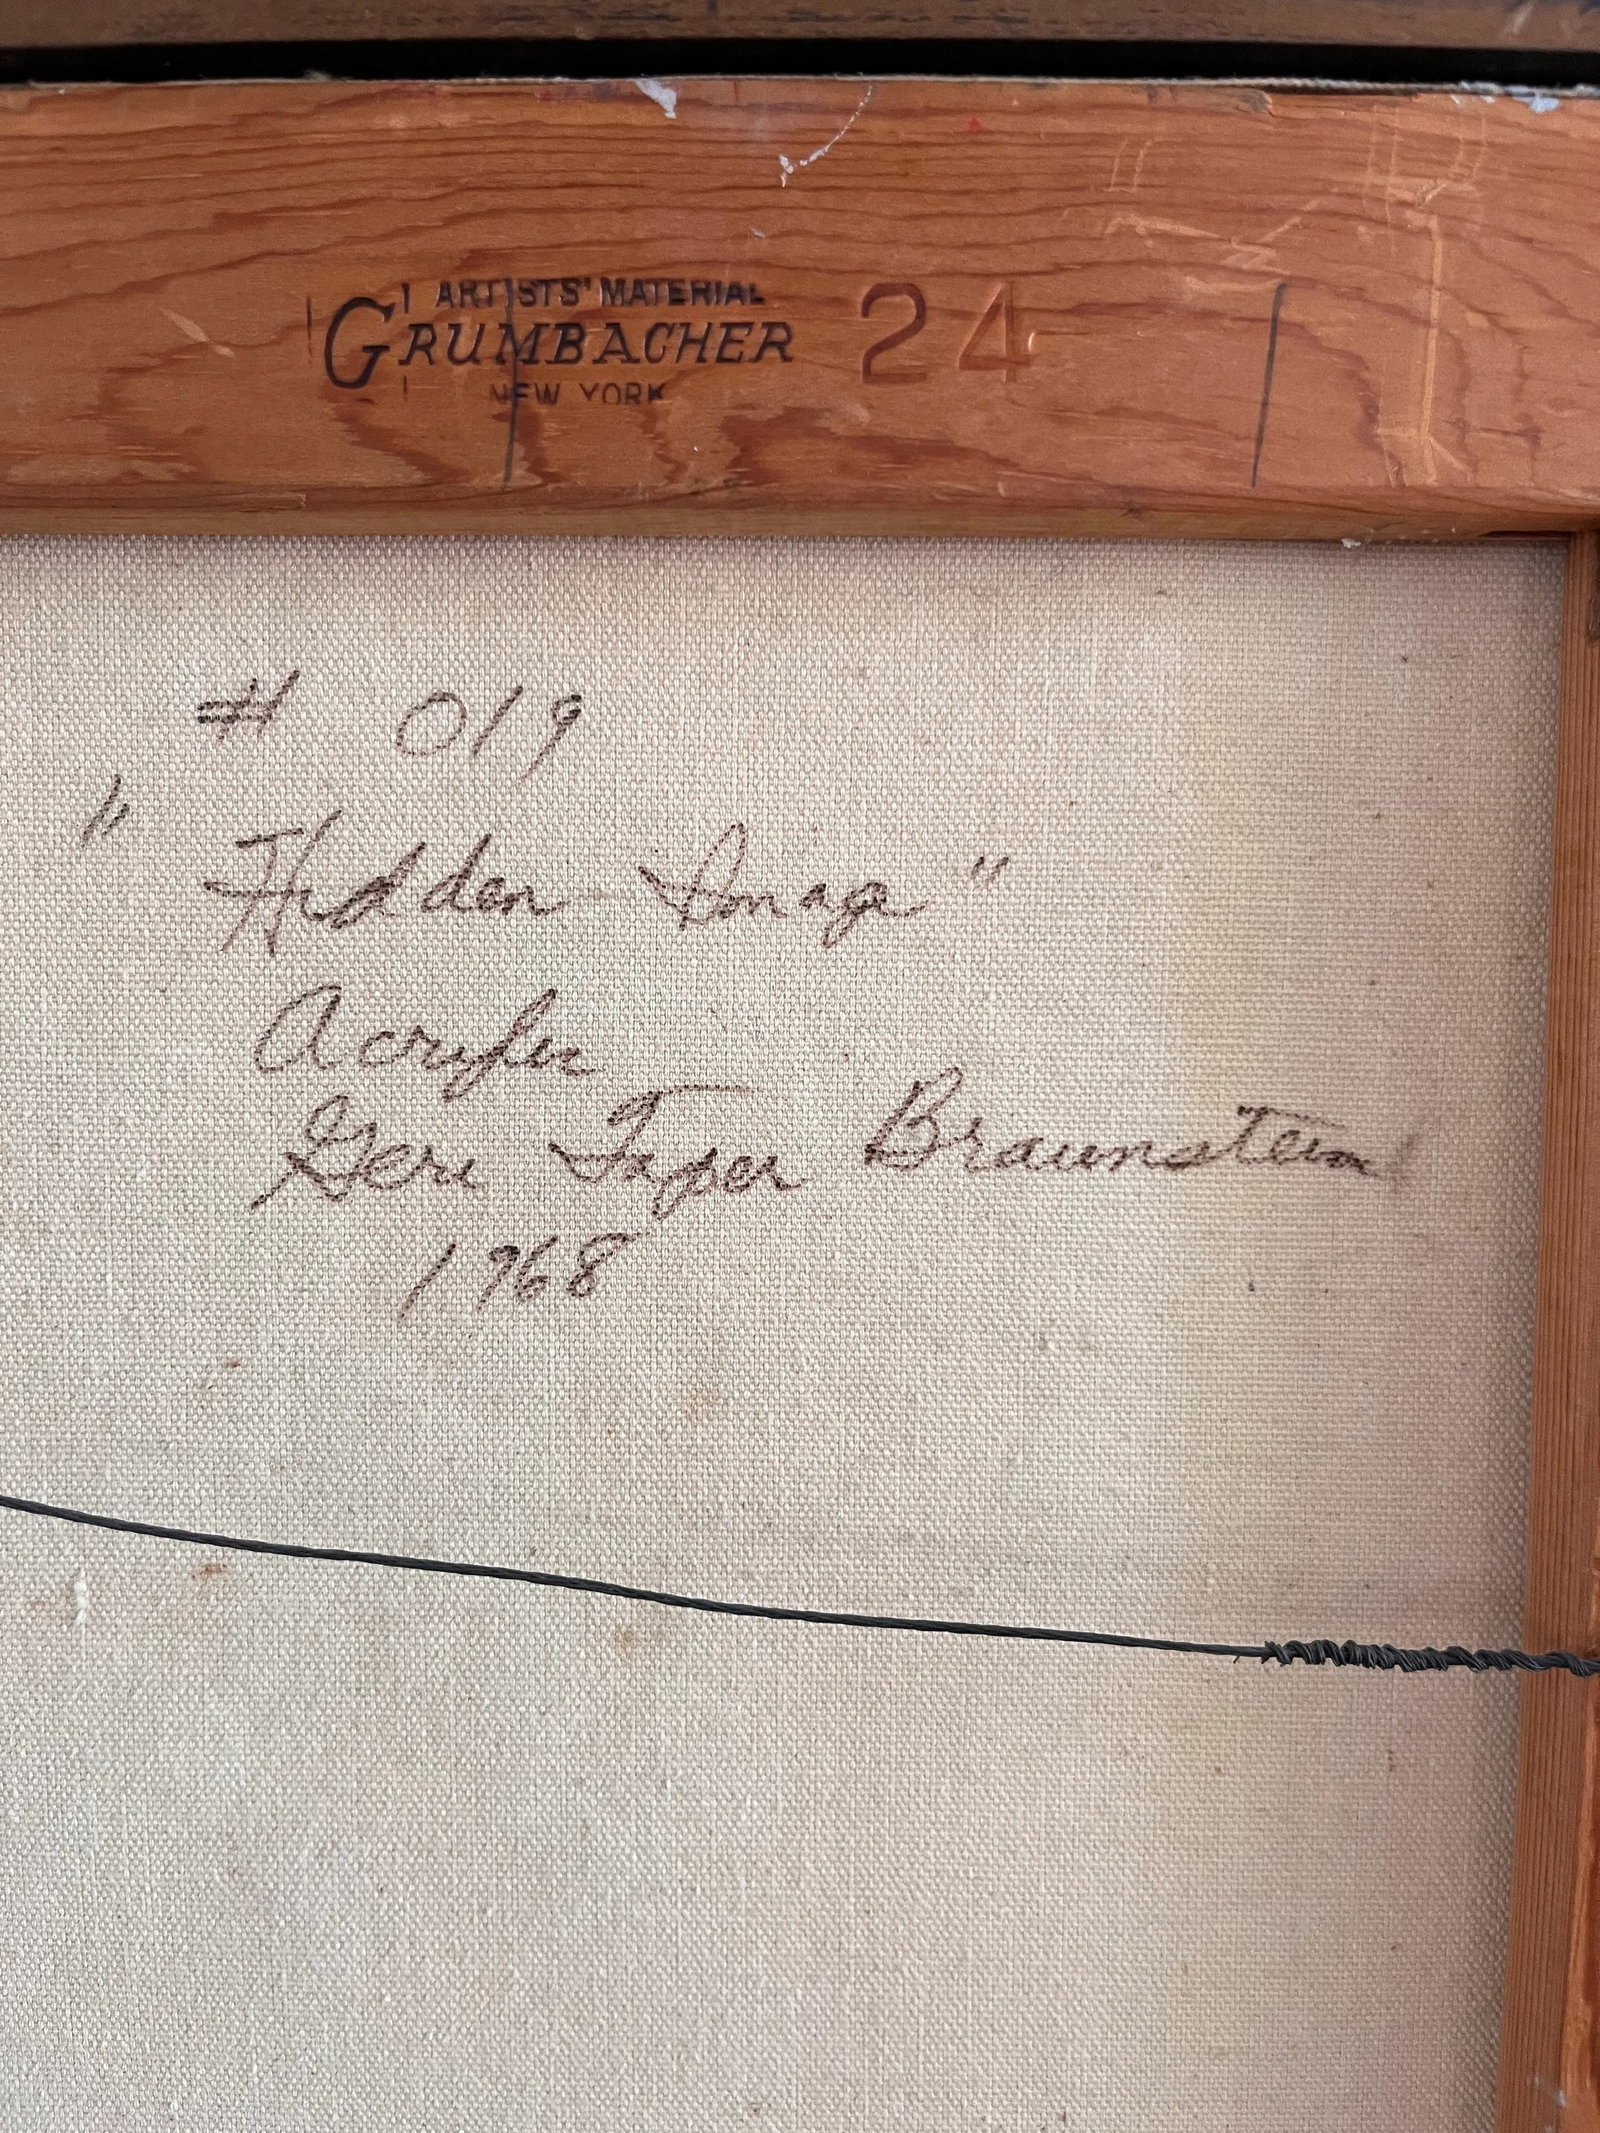 ARTISTS' MATERIAL
GRUMBACHER 24
NEW YORK
# 019
" Hidden Image "
Acrylic
Geri Taper Braunstein
1968